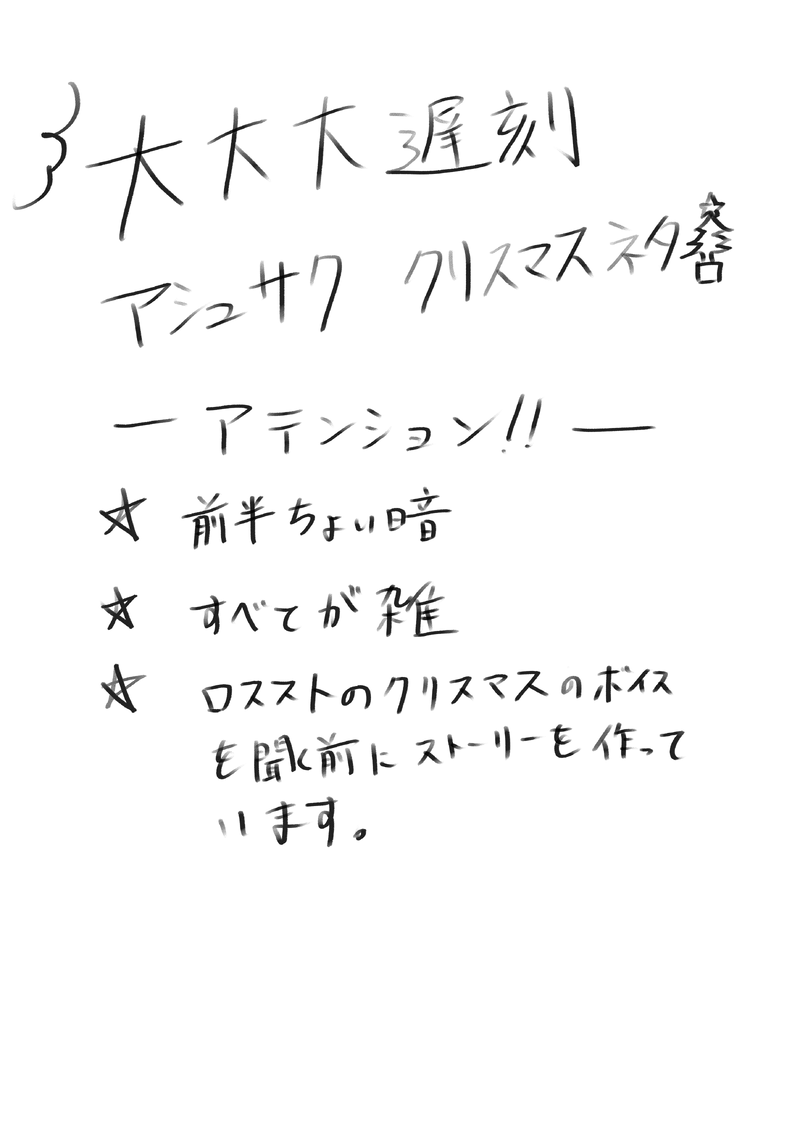 大大大遅刻
アシュサク クリスマスネタ
ー アテンション!! ー
☆ 前半ちょい暗
☆ すべてが雑
☆ ロスストのクリスマスのボイス
を聞く前にストーリーを作って
います。